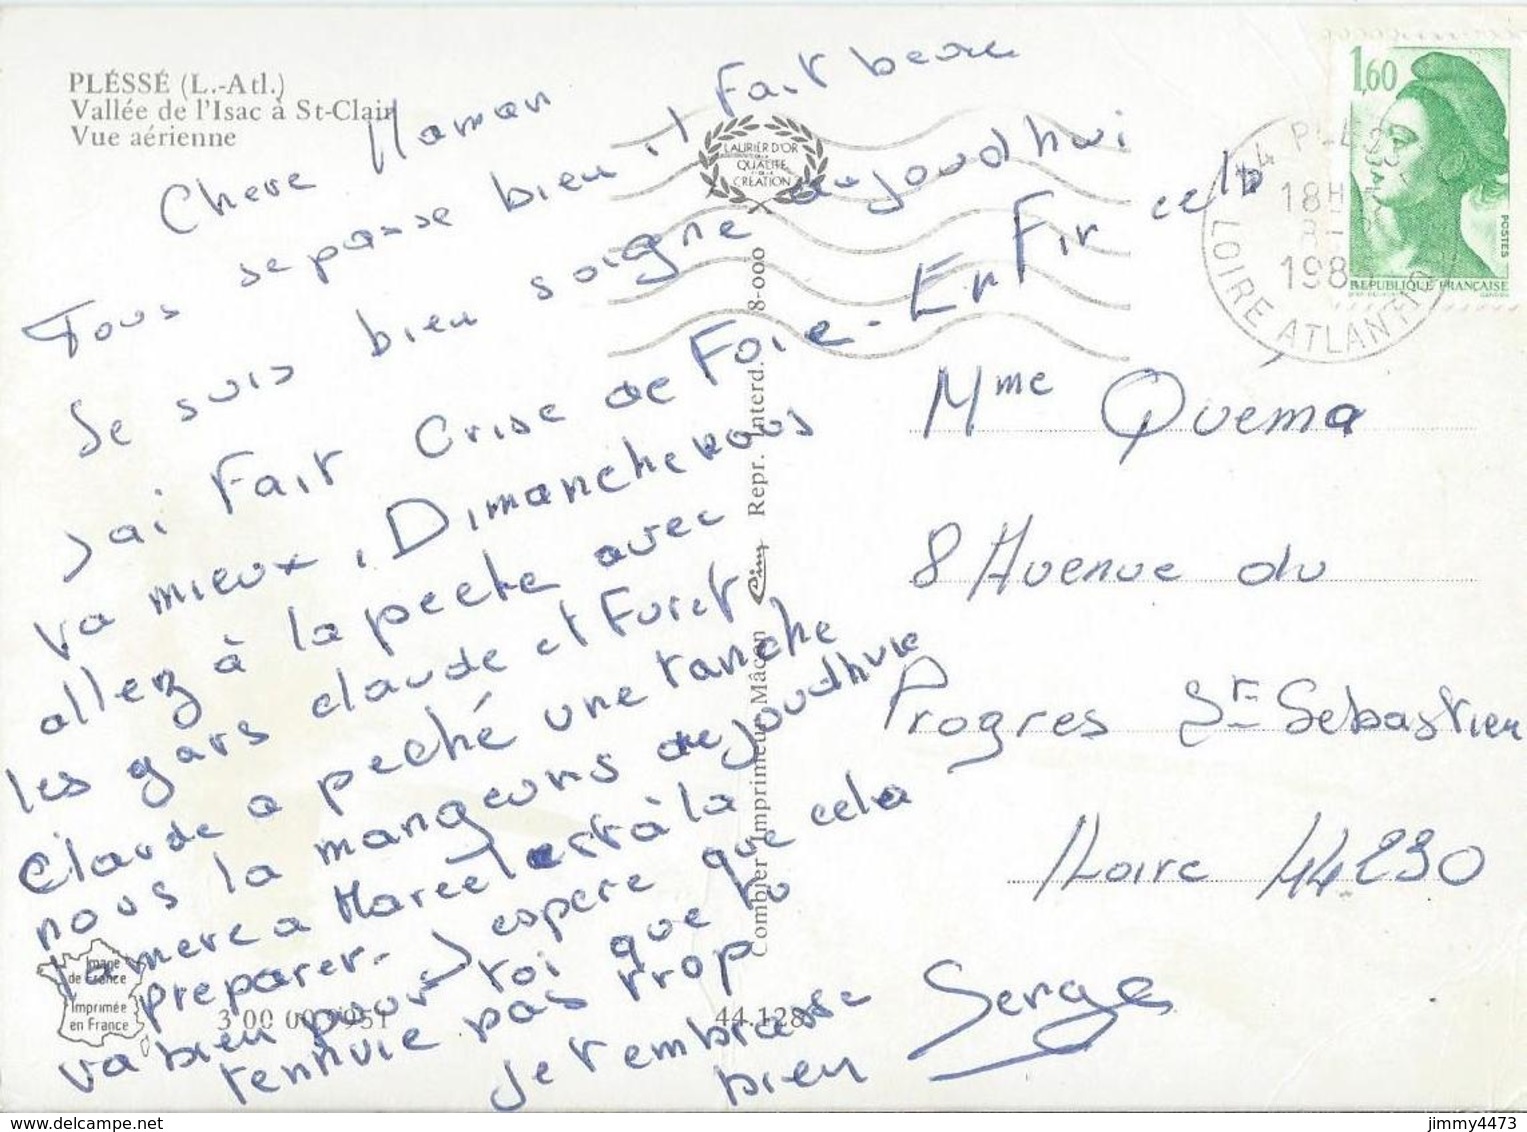 PLÉSSÉ (L.-Atl.)
Vallée de l'Isac à St-Clair
Vue aérienne
Chere Maman
Tous se passe bien il fait beau
Je suis bien soigné aujoudhui
J ai Fait Crise de Foie - En Fin cela
va mieux, Dimanche nous
allez à la peche avec
les gars claude et Furet
Claude a peché une tanche
nous la mangeons aujoudhuie
la mere a Marcel est à la
preparer - J espere que cela
va bien pour toi que tu
tennuie pas trop
je t embrasse
bien
Serge
Mme Quema
8 Avenue du
Progres St Sebastien
/Loire 44230
LAURIER D'OR
DE LA
QUALITÉ
CRÉATION
1,60
POSTES
RÉPUBLIQUE FRANÇAISE
44 PLESSE
18H
LOIRE ATLANTIQUE
Combier Imprimeur Mâcon Cim Repr. Interd. 8-000
Image
de France
Imprimée
en France
44.128
http://www.delcampe.net
jimmy4473